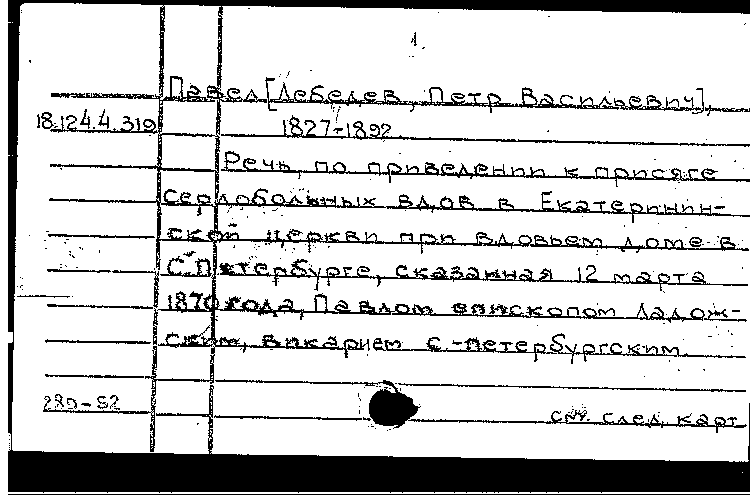 1.
Павел [Лебедев, Петр Васильевич],
18.124.4.319 1827-1892.
Речь, по приведении к присяге
сердобольных вдов в Екатеринин-
ской церкви при вдовьем доме в
С.Петербурге, сказанная 12 марта
1870 года, Павлом епископом Ладож-
ским, викарием С.-Петербургским.
280-52
см. след. карт